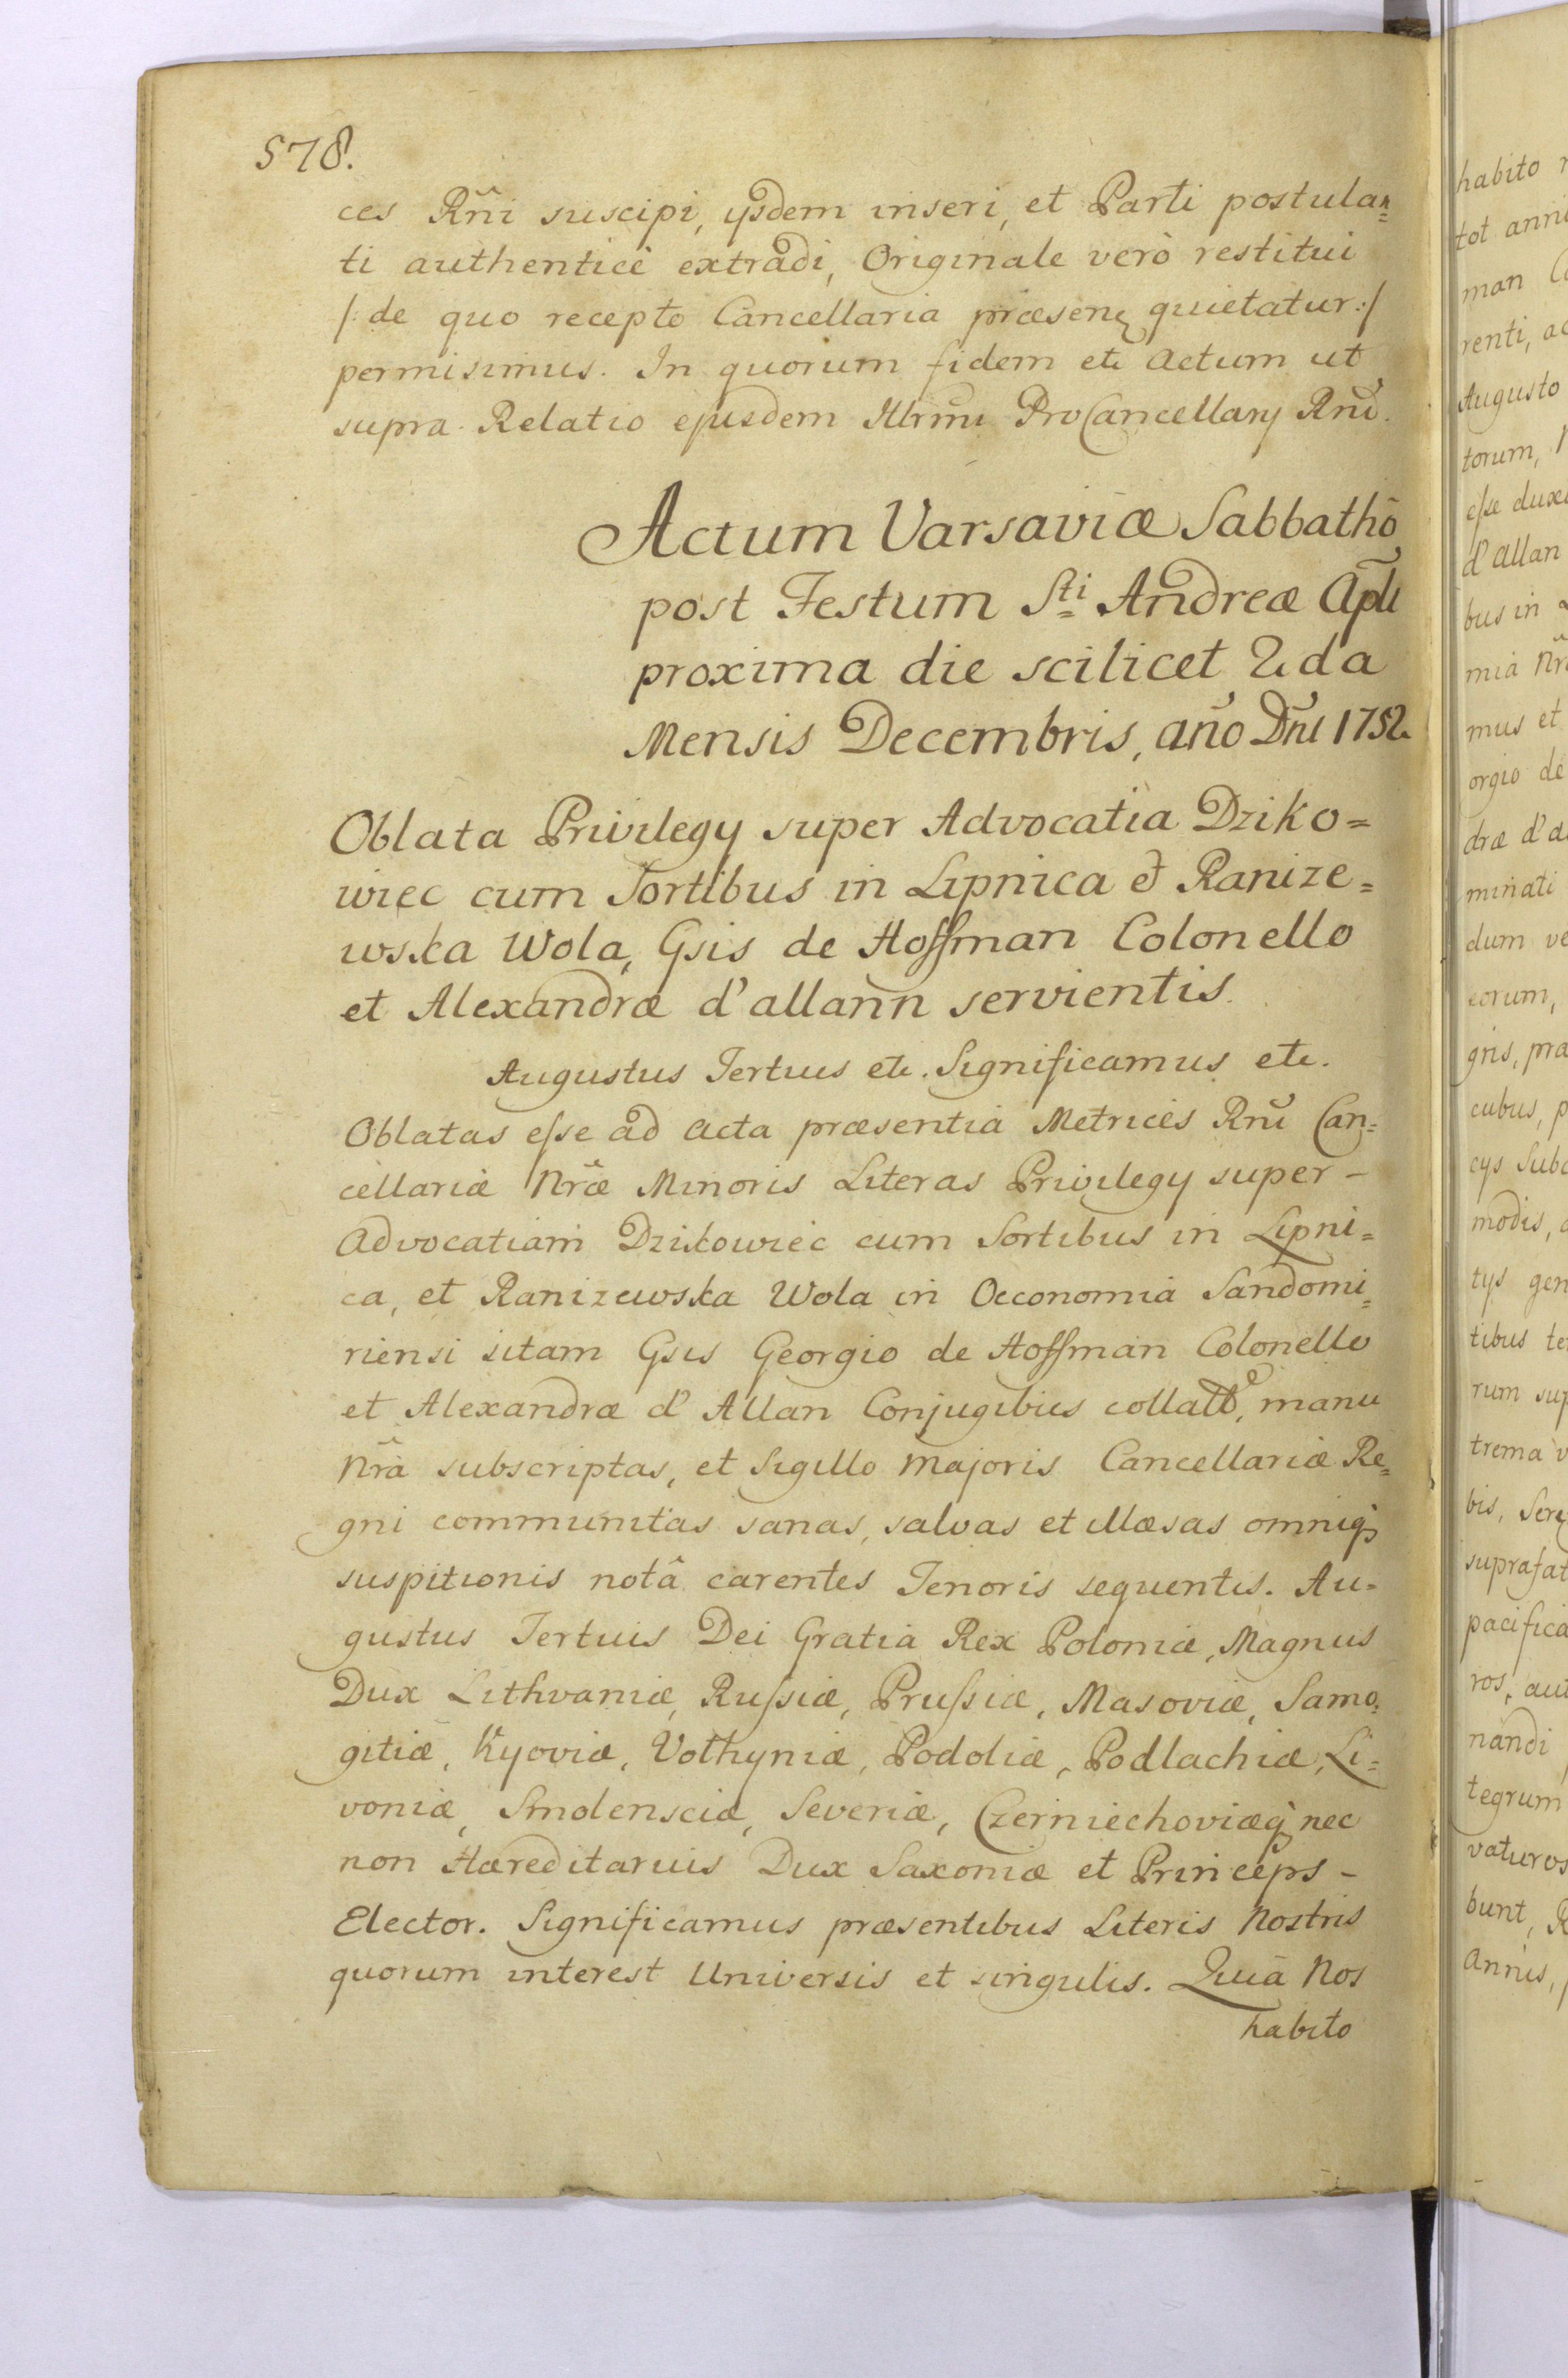 578.
ces Rñi suscipi, ijsdem inseri, et Parti postulan=
ti authenticè extradi, Originale verò restitui
/: de quo recepto Cancellaria præsens quietatur :/
permisimus. In quorum fidem etc. Actum ut
supra. Relatio ejusdem Illrmi ProCancellarij Rni.
Actum Varsaviæ Sabbathō
post Festum Sti Andreæ Apli
proxima die scilicet 2da
Mensis Decembris, año Dñi 1752.
Oblata Privilegij super Advocatia Dziko=
wiec cum Sortibus in Lipnica et Ranize=
wska Wola, Gsis de Hoffman Colonello
et Alexandræ d'allann servientis.
Augustus Tertius etc. Significamus etc.
Oblatas esse ad Acta præsentia Metrices Rni Can=
cellariæ Nræ Minoris Literas Privilegij super -
Advocatiam Dzikowiec cum Sortibus in Lipni=
ca, et Ranizewska Wola in Oeconomia Sandomi=
riensi sitam Gsis Georgio de Hoffman Colonello
et Alexandræ d' Allan Conjugibus manu
Nrâ subscriptas, et Sigillo Majoris Cancellariæ Re=
gni communitas sanas, salvas et illæsas omniq;
suspitionis notâ carentes Tenoris sequentis. Au=
gustus Tertius Dei Gratia Rex Poloniæ, Magnus
Dux Lithvaniæ, Russiæ, Prussiæ, Masoviæ, Samo=
gitiæ, Kyoviæ, Volhyniæ, Podoliæ, Podlachiæ, Li=
voniæ, Smolensciæ, Severiæ, Czerniechoviæq; nec
non Hæreditarius Dux Saxoniæ et Princeps -
Elector. Significamus præsentibus Literis Nostris
quorum interest Universis et singulis. Quia Nos
habito
habito
tot anni
man
renti, ac
Augusto
torum,
esse dux
d'allan
bus in
mia Nr
mus et
orgio de
dræ d'a
minati
dum ve
eorum,
gris, pra
cubus, p
cys Subd
modis,
tys gen
tibus te
rum sup
trema v
bis, Ser
suprafat
pacifica
ros, aut
nandi
tegrum
vaturos
bunt, R
Annis,